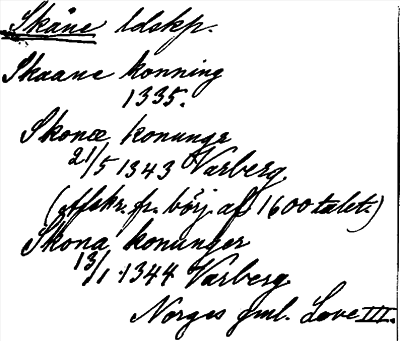 Skåne ldskp.
Skaane konning
1335.
Skonæ konungr
21/5 1343 Varberg
(Afskr. fr. börj. af 1600talet.)
Skona konunger
13/1 1344 Varberg
Norges gml. Love III.